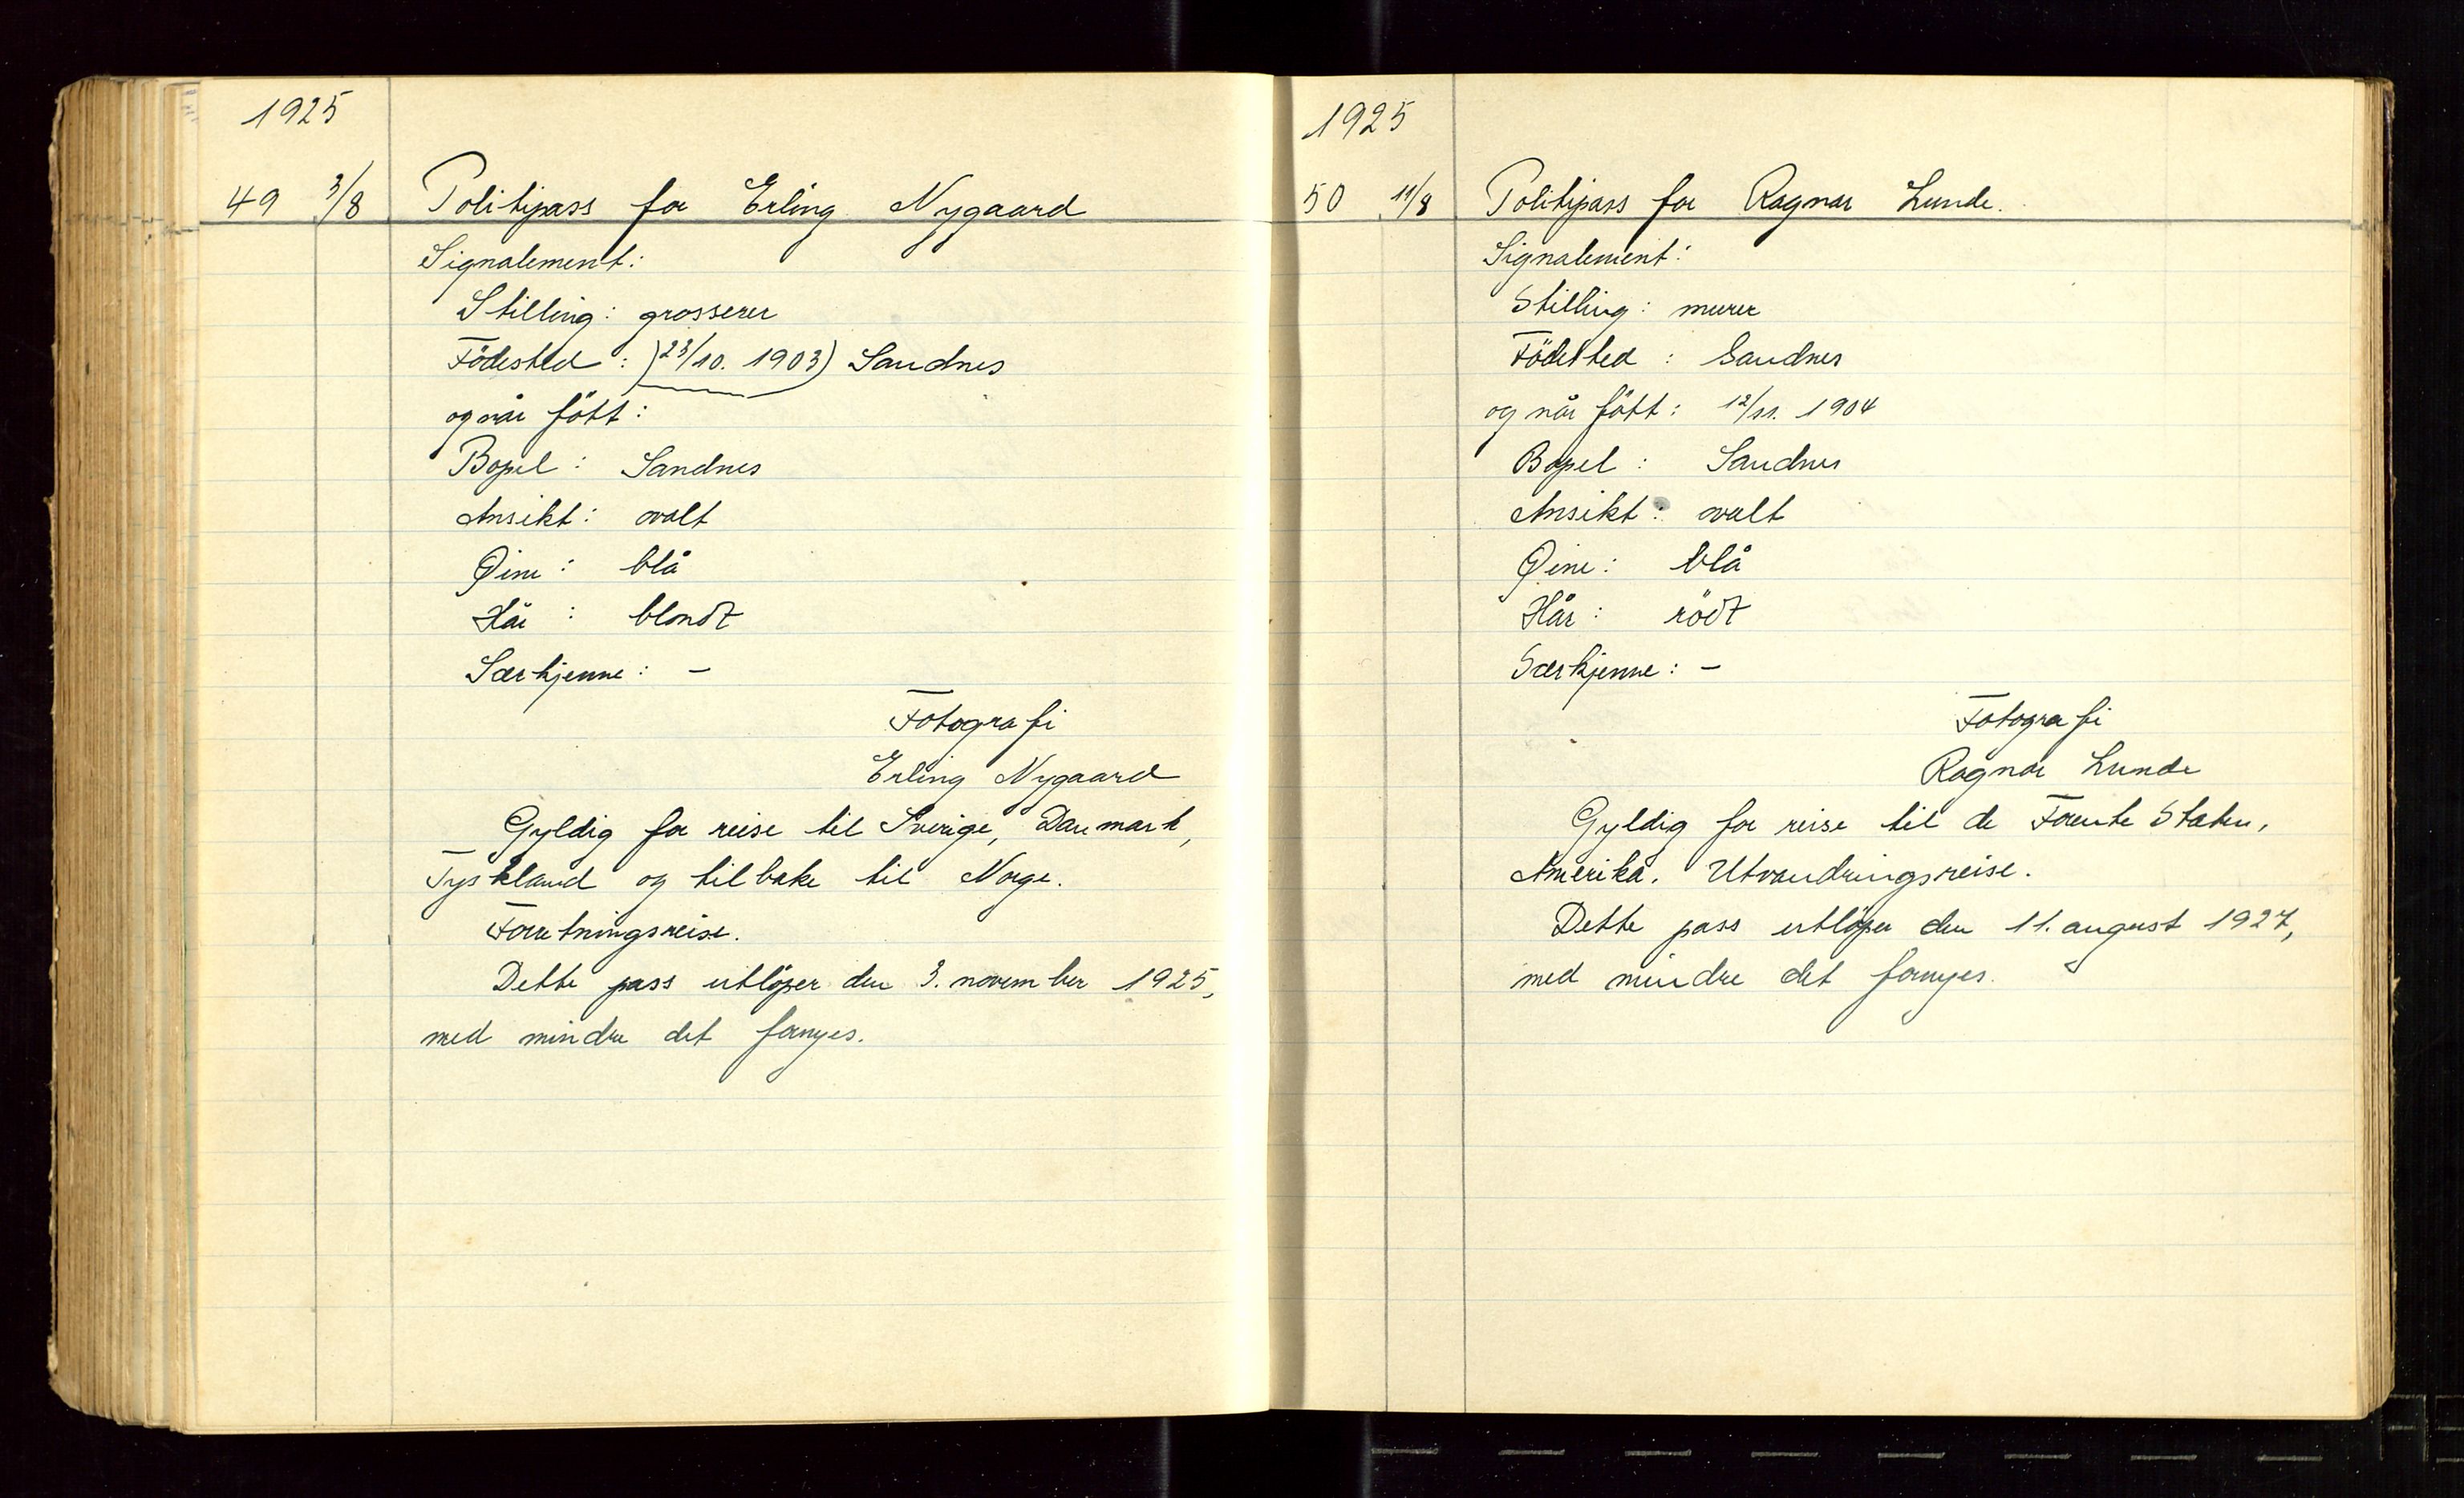 1925
49 3/8 Politipass for Erling Nygaard
Signalement:
Stilling: grosserer
Födested: (23/10. 1903) Sandnes
og når fött:
Bopel: Sandnes
Ansikt: ovalt
Øine: blå
Hår: blondt
Særkjenne: -
Fotografi
Erling Nygaard
Gyldig for reise til Sverige, Danmark,
Tyskland og tilbake til Norge.
Forretningsreise.
Dette pass utlöper den 3. november 1925,
med mindre det fornyes.
1925
50 11/8 Politipass for Ragnar Lunde.
Signalement:
Stilling: murer
Födested: Sandnes
og når fött: 12/11. 1904
Bopel: Sandnes
Ansikt: ovalt
Øine: blå
Hår: rödt
Særkjenne: -
Fotografi
Ragnar Lunde
Gyldig for reise til de Forente Stater,
Amerika. Utvandringsreise.
Dette pass utlöper den 11. august 1927,
med mindre det fornyes.